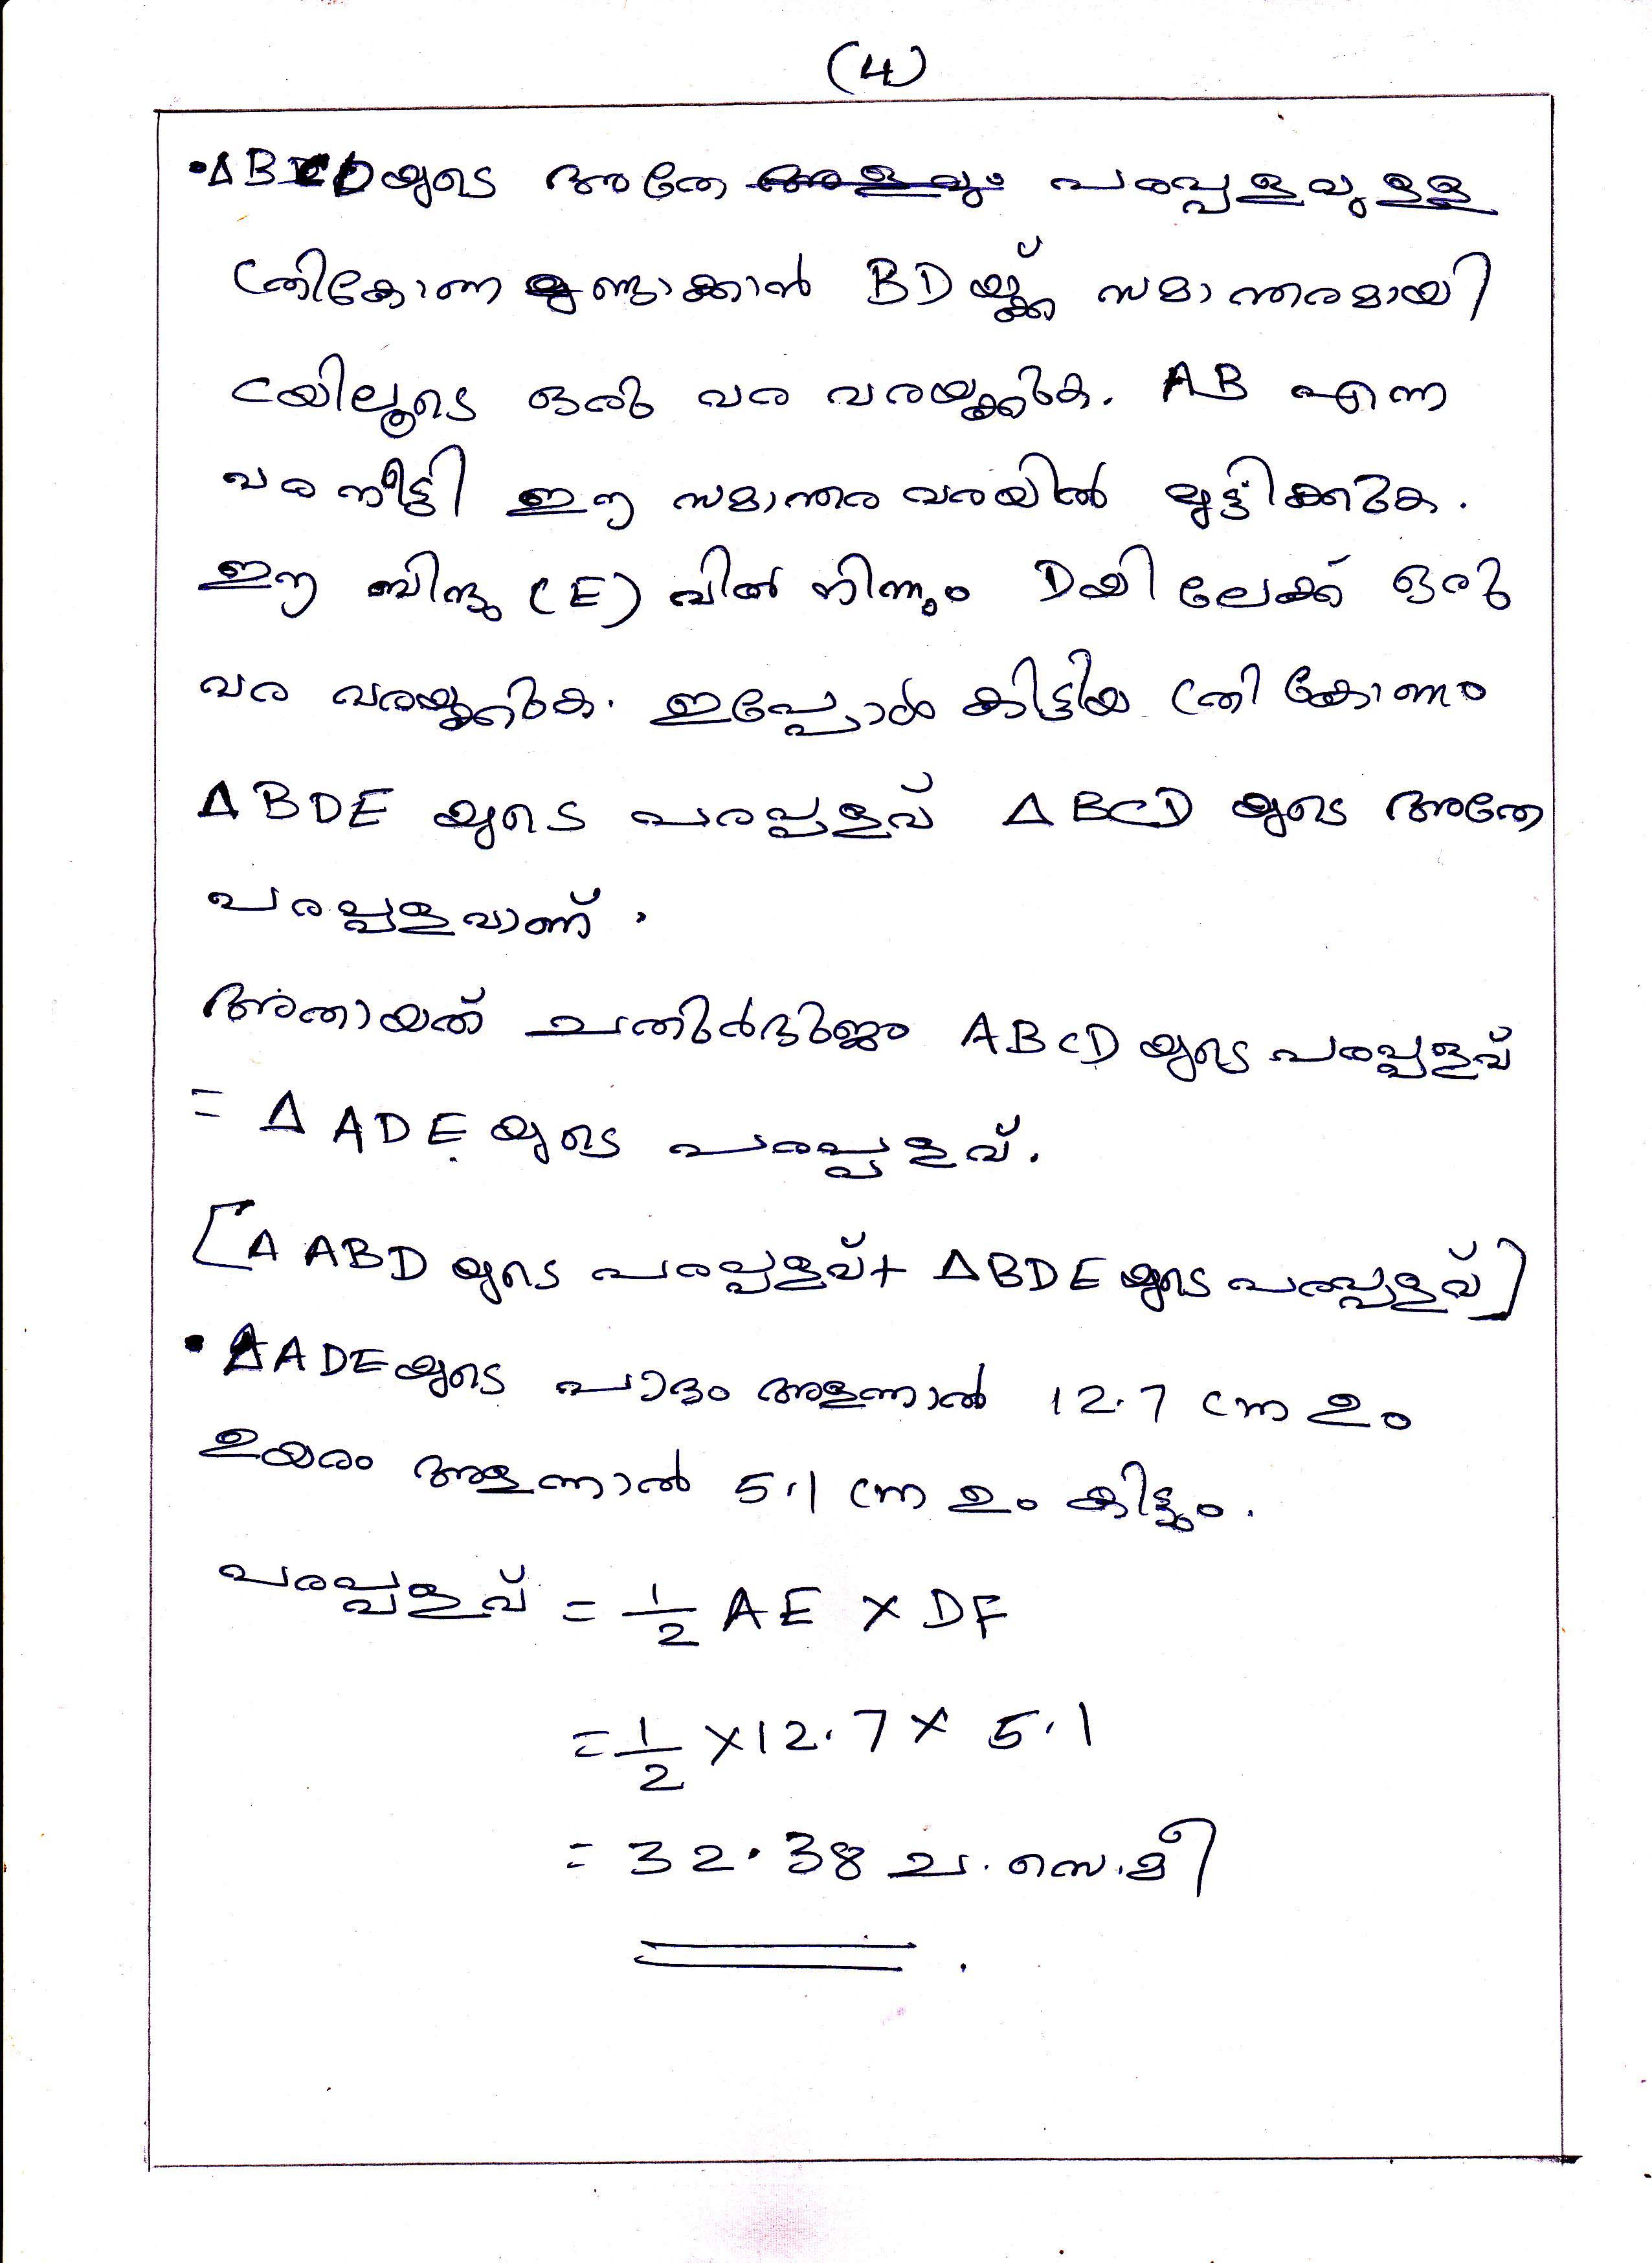 (4)
• ΔBCDയുടെ അതേ പരപ്പളവുള്ള
ത്രികോണമുണ്ടാക്കാൻ BDയ്ക്ക് സമാന്തരമായി
Cയിലൂടെ ഒരു വര വരയ്ക്കുക. AB എന്ന
വര നീട്ടി ഈ സമാന്തര വരയിൽ മുട്ടിക്കുക.
ഈ ബിന്ദു (E) വിൽ നിന്നും Dയിലേക്ക് ഒരു
വര വരയ്ക്കുക. ഇപ്പോൾ കിട്ടിയ ത്രികോണം
Δ BDE യുടെ പരപ്പളവ് Δ BCD യുടെ അതേ
പരപ്പളവാണ്.
അതായത് ചതുർഭുജം ABCD യുടെ പരപ്പളവ്
= Δ ADE യുടെ പരപ്പളവ്.
[Δ ABD യുടെ പരപ്പളവ് + ΔBDE യുടെ പരപ്പളവ്]
• ΔADEയുടെ പാദം അളന്നാൽ 12.7 cm ഉം
ഉയരം അളന്നാൽ 5.1 cm ഉം കിട്ടും.
പരപ്പളവ് = 1/2 AE × DF
= 1/2 × 12.7 × 5.1
= 32.38 ച.സെ.മീ